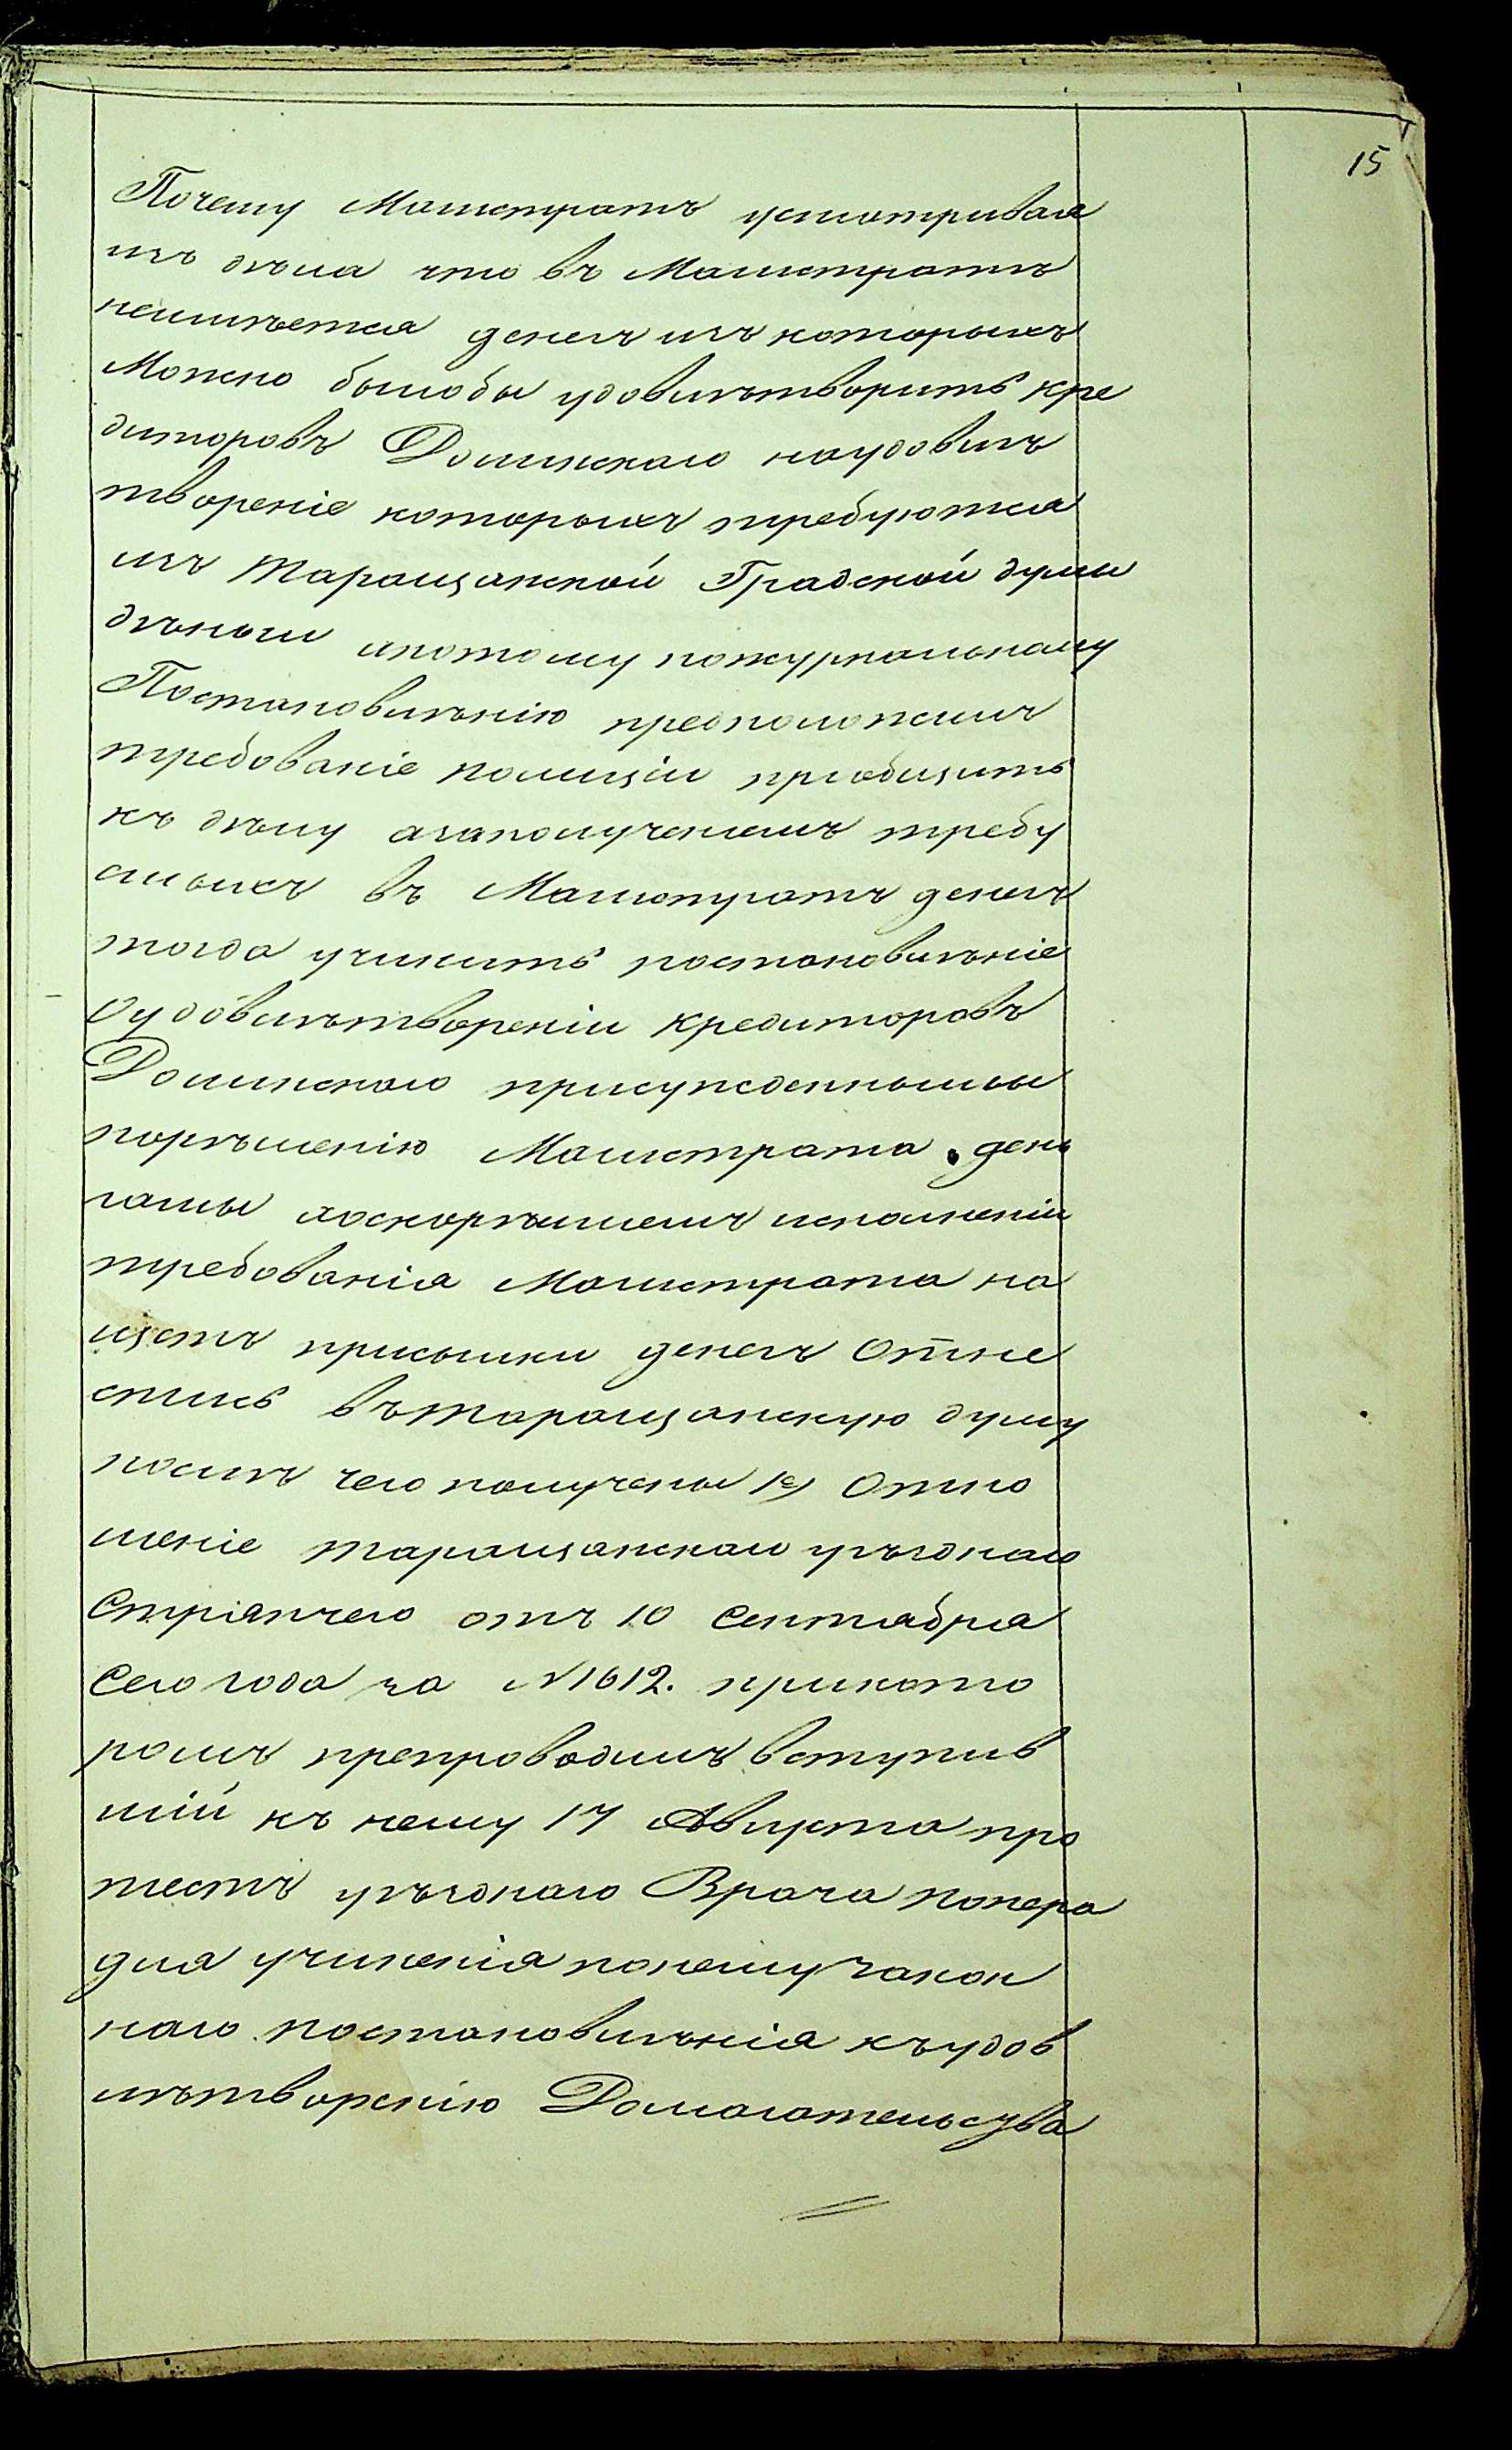 15
Почему Магистратъ усматривая
изъ дѣла что въ Магистратѣ
неимѣется денегъ изъ которыхъ
Можно былобы удовилѣтворить кре
диторовъ Долинскаго наудовилѣ
твореніе которыхъ требуются
изъ Таращанской Градской думы
дѣньги апотому пожурнальному
Постановилѣнію предположилъ
требованіе полиціи пріобщить
къ дѣлу азаполученіемъ требу
емыхъ въ Магистратъ денегъ
тогда учинить постановилѣніе
Оудовилѣтвореніи кредиторовъ
Долинскаго присужденными
порѣшенію Магистрата день
гами аоскорѣйшемъ исполненіи
требованія Магистрата на
щетъ присылки денегъ Отне
стись въТаращанскую думу
послѣ чего получены 1е) Отно
шеніе Таращанскаго уѣзднаго
Стряпчего отъ 10 Сентября
Сего года за №1612. прикото
ромъ препроводилъ вступив
шій къ нему 17 Августа про
тестъ уѣзднаго Врача Попера
для учиненія понему закон
наго постановилѣнія къудов
лѣтворенію Домогательства